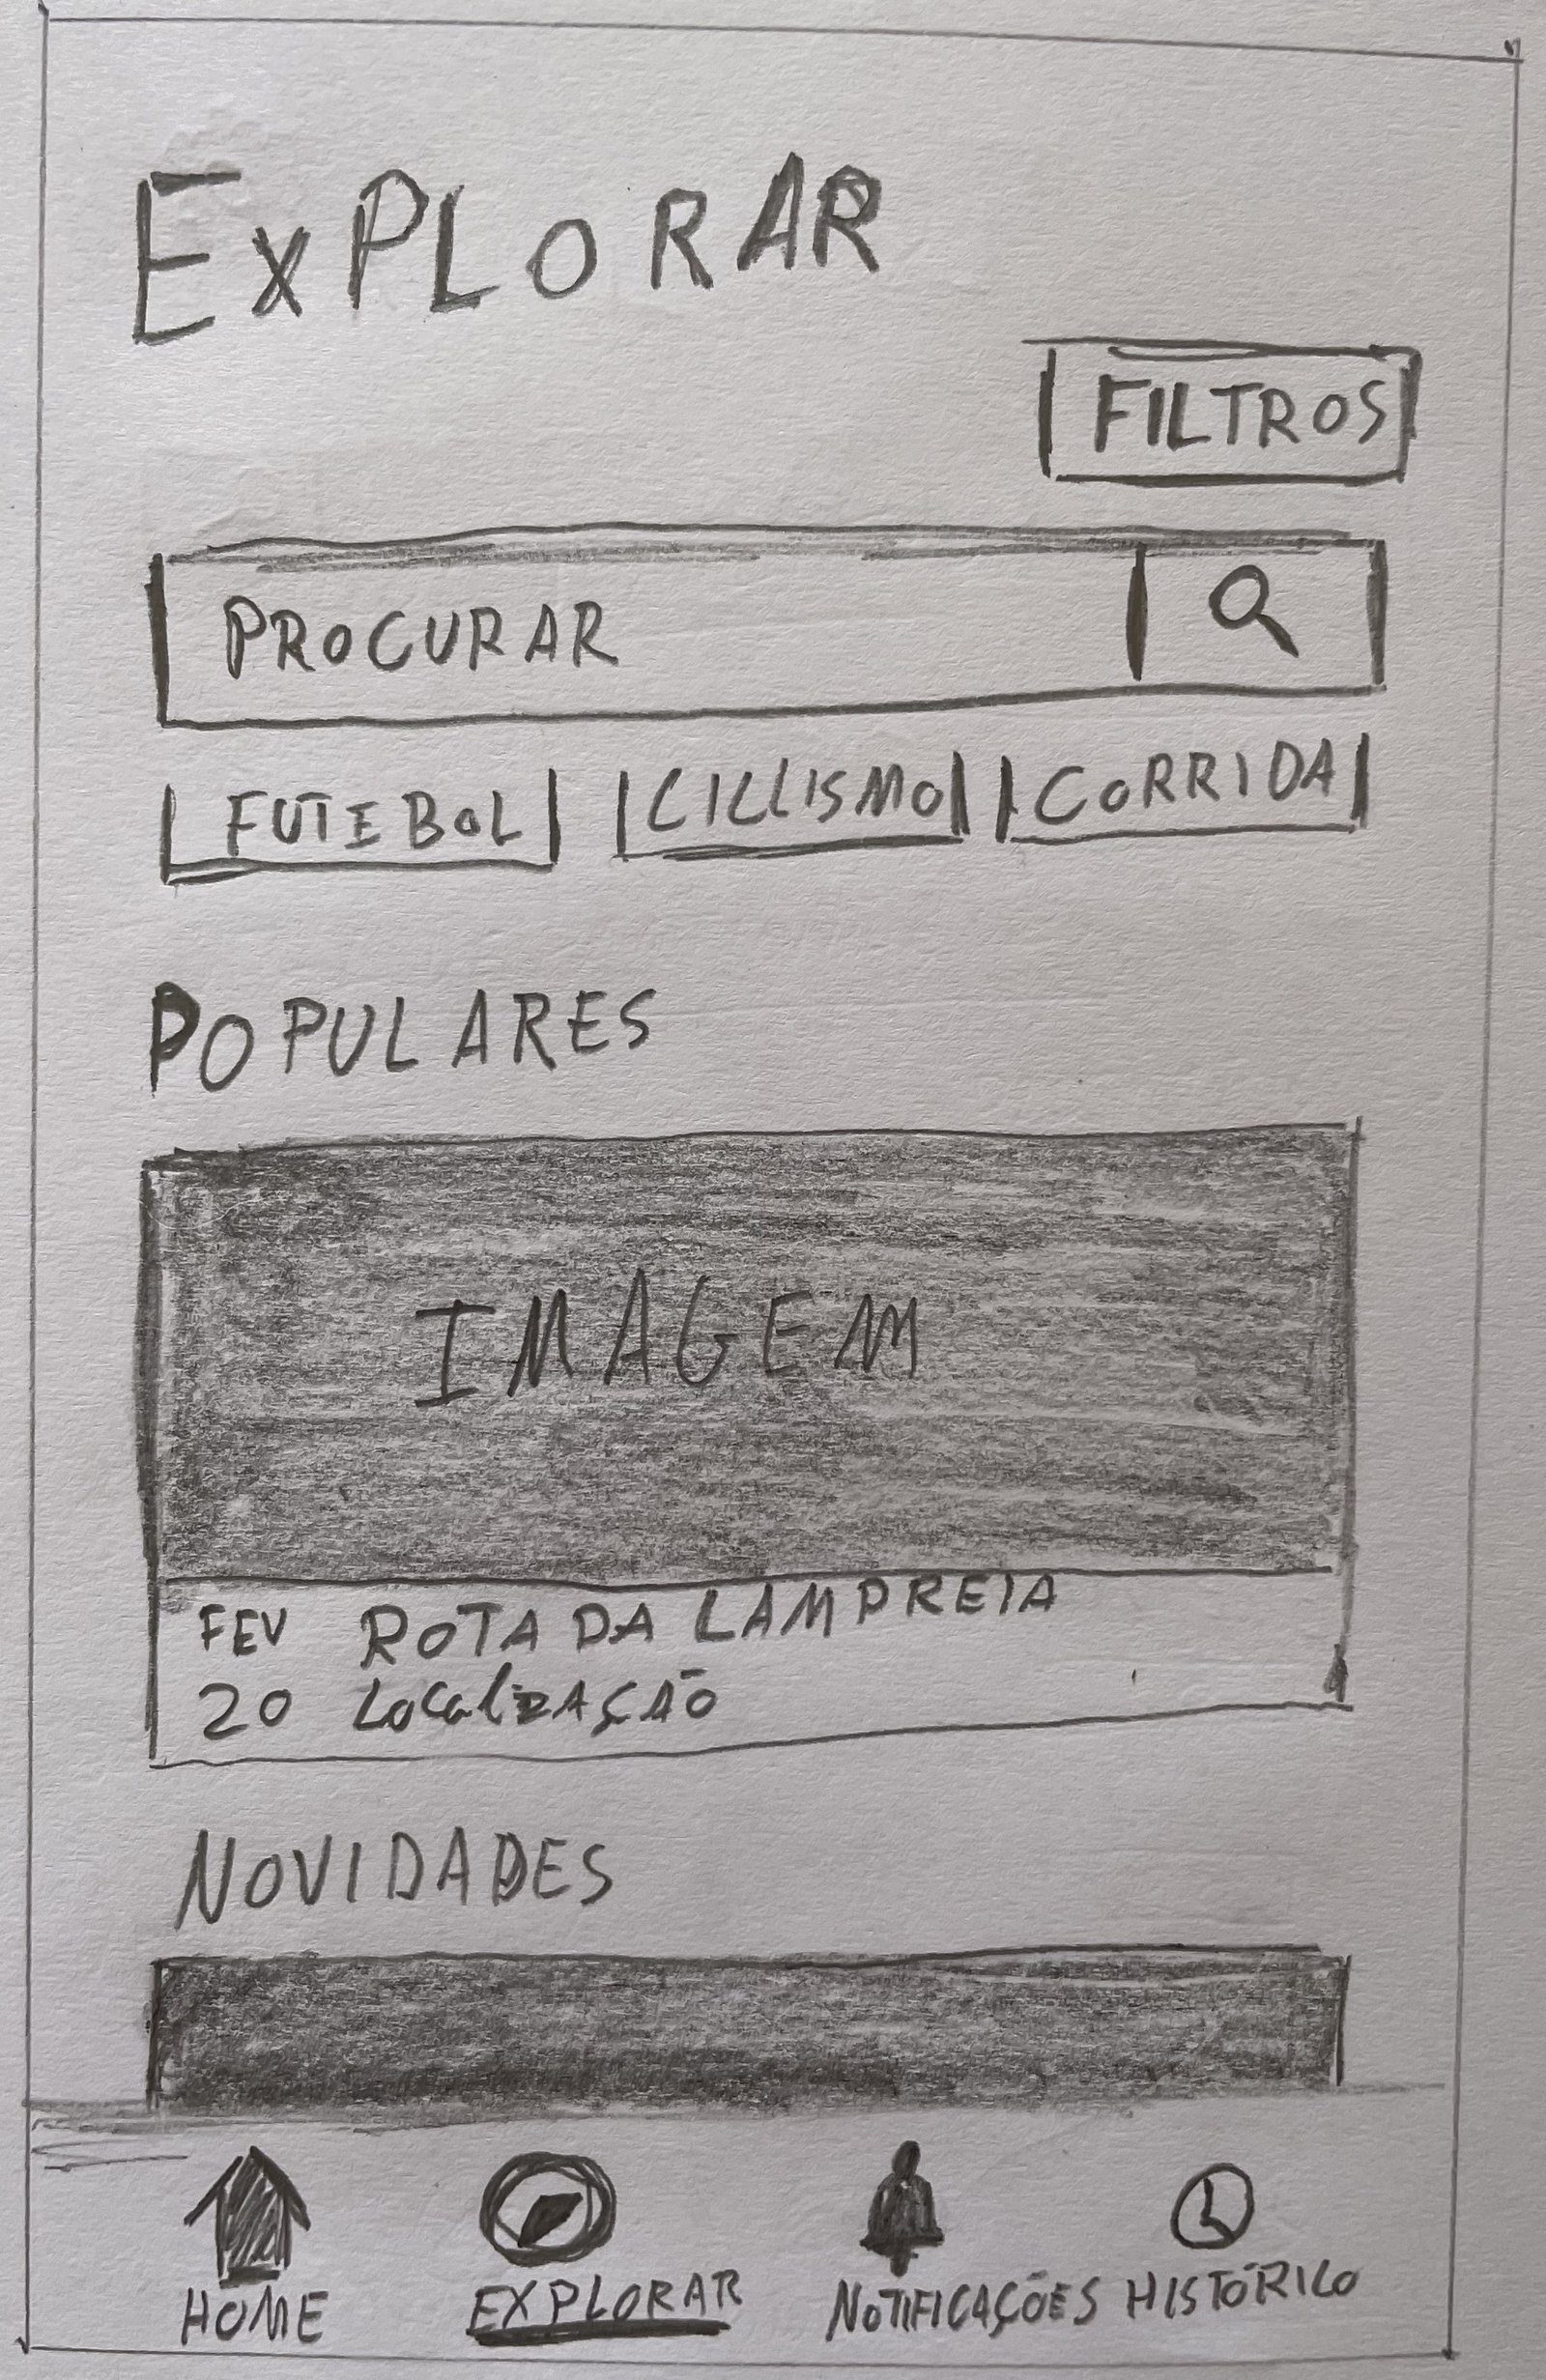 EXPLORAR
FILTROS
PROCURAR
FUTEBOL CICLISMO CORRIDA
POPULARES
IMAGEM
FEV ROTA DA LAMPREIA
20 LocalizAÇÃO
NOVIDADES
HOME EXPLORAR NOTIFICAÇÕES HISTÓRICO